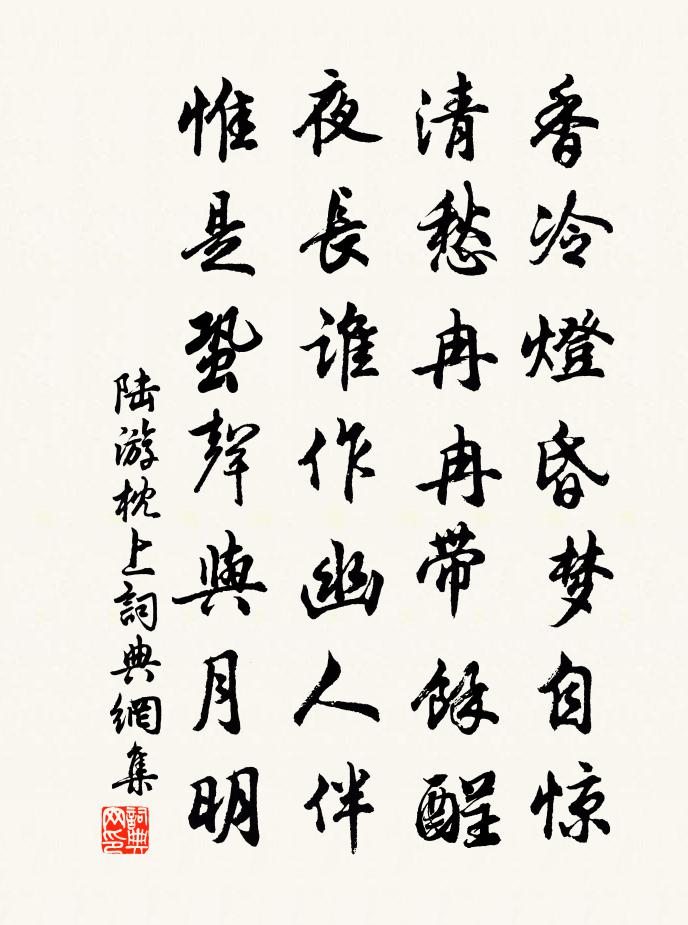 香冷燈昏梦自惊
清愁冉冉带餘醒
夜長誰作幽人伴
惟是蛩聲與月明
陆游枕上詞典網集
詞典网印